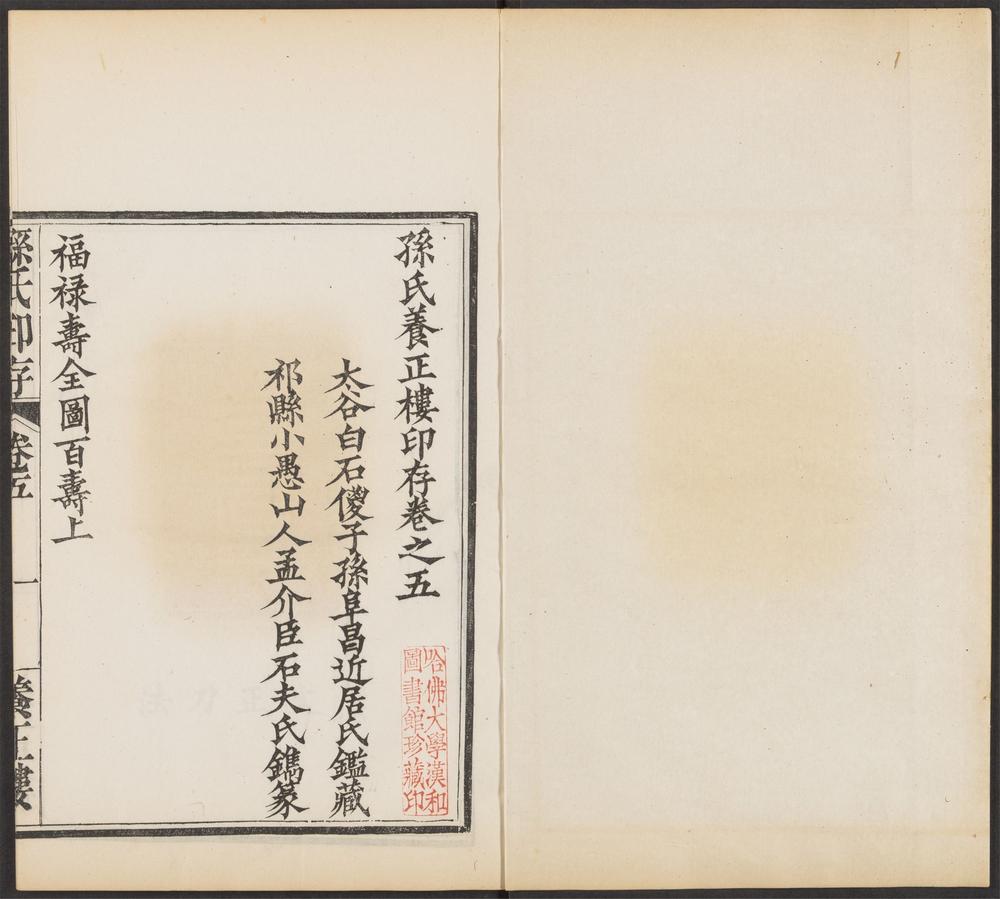 孫氏養正樓印存卷之五
哈佛大學漢和
圖書館珍藏印
太谷白石傻子孫阜昌近居氏鑑藏
祁縣小愚山人孟介臣石夫氏鐫篆
福禄壽全圖百壽上
孫氏印存 卷五 一 養正樓